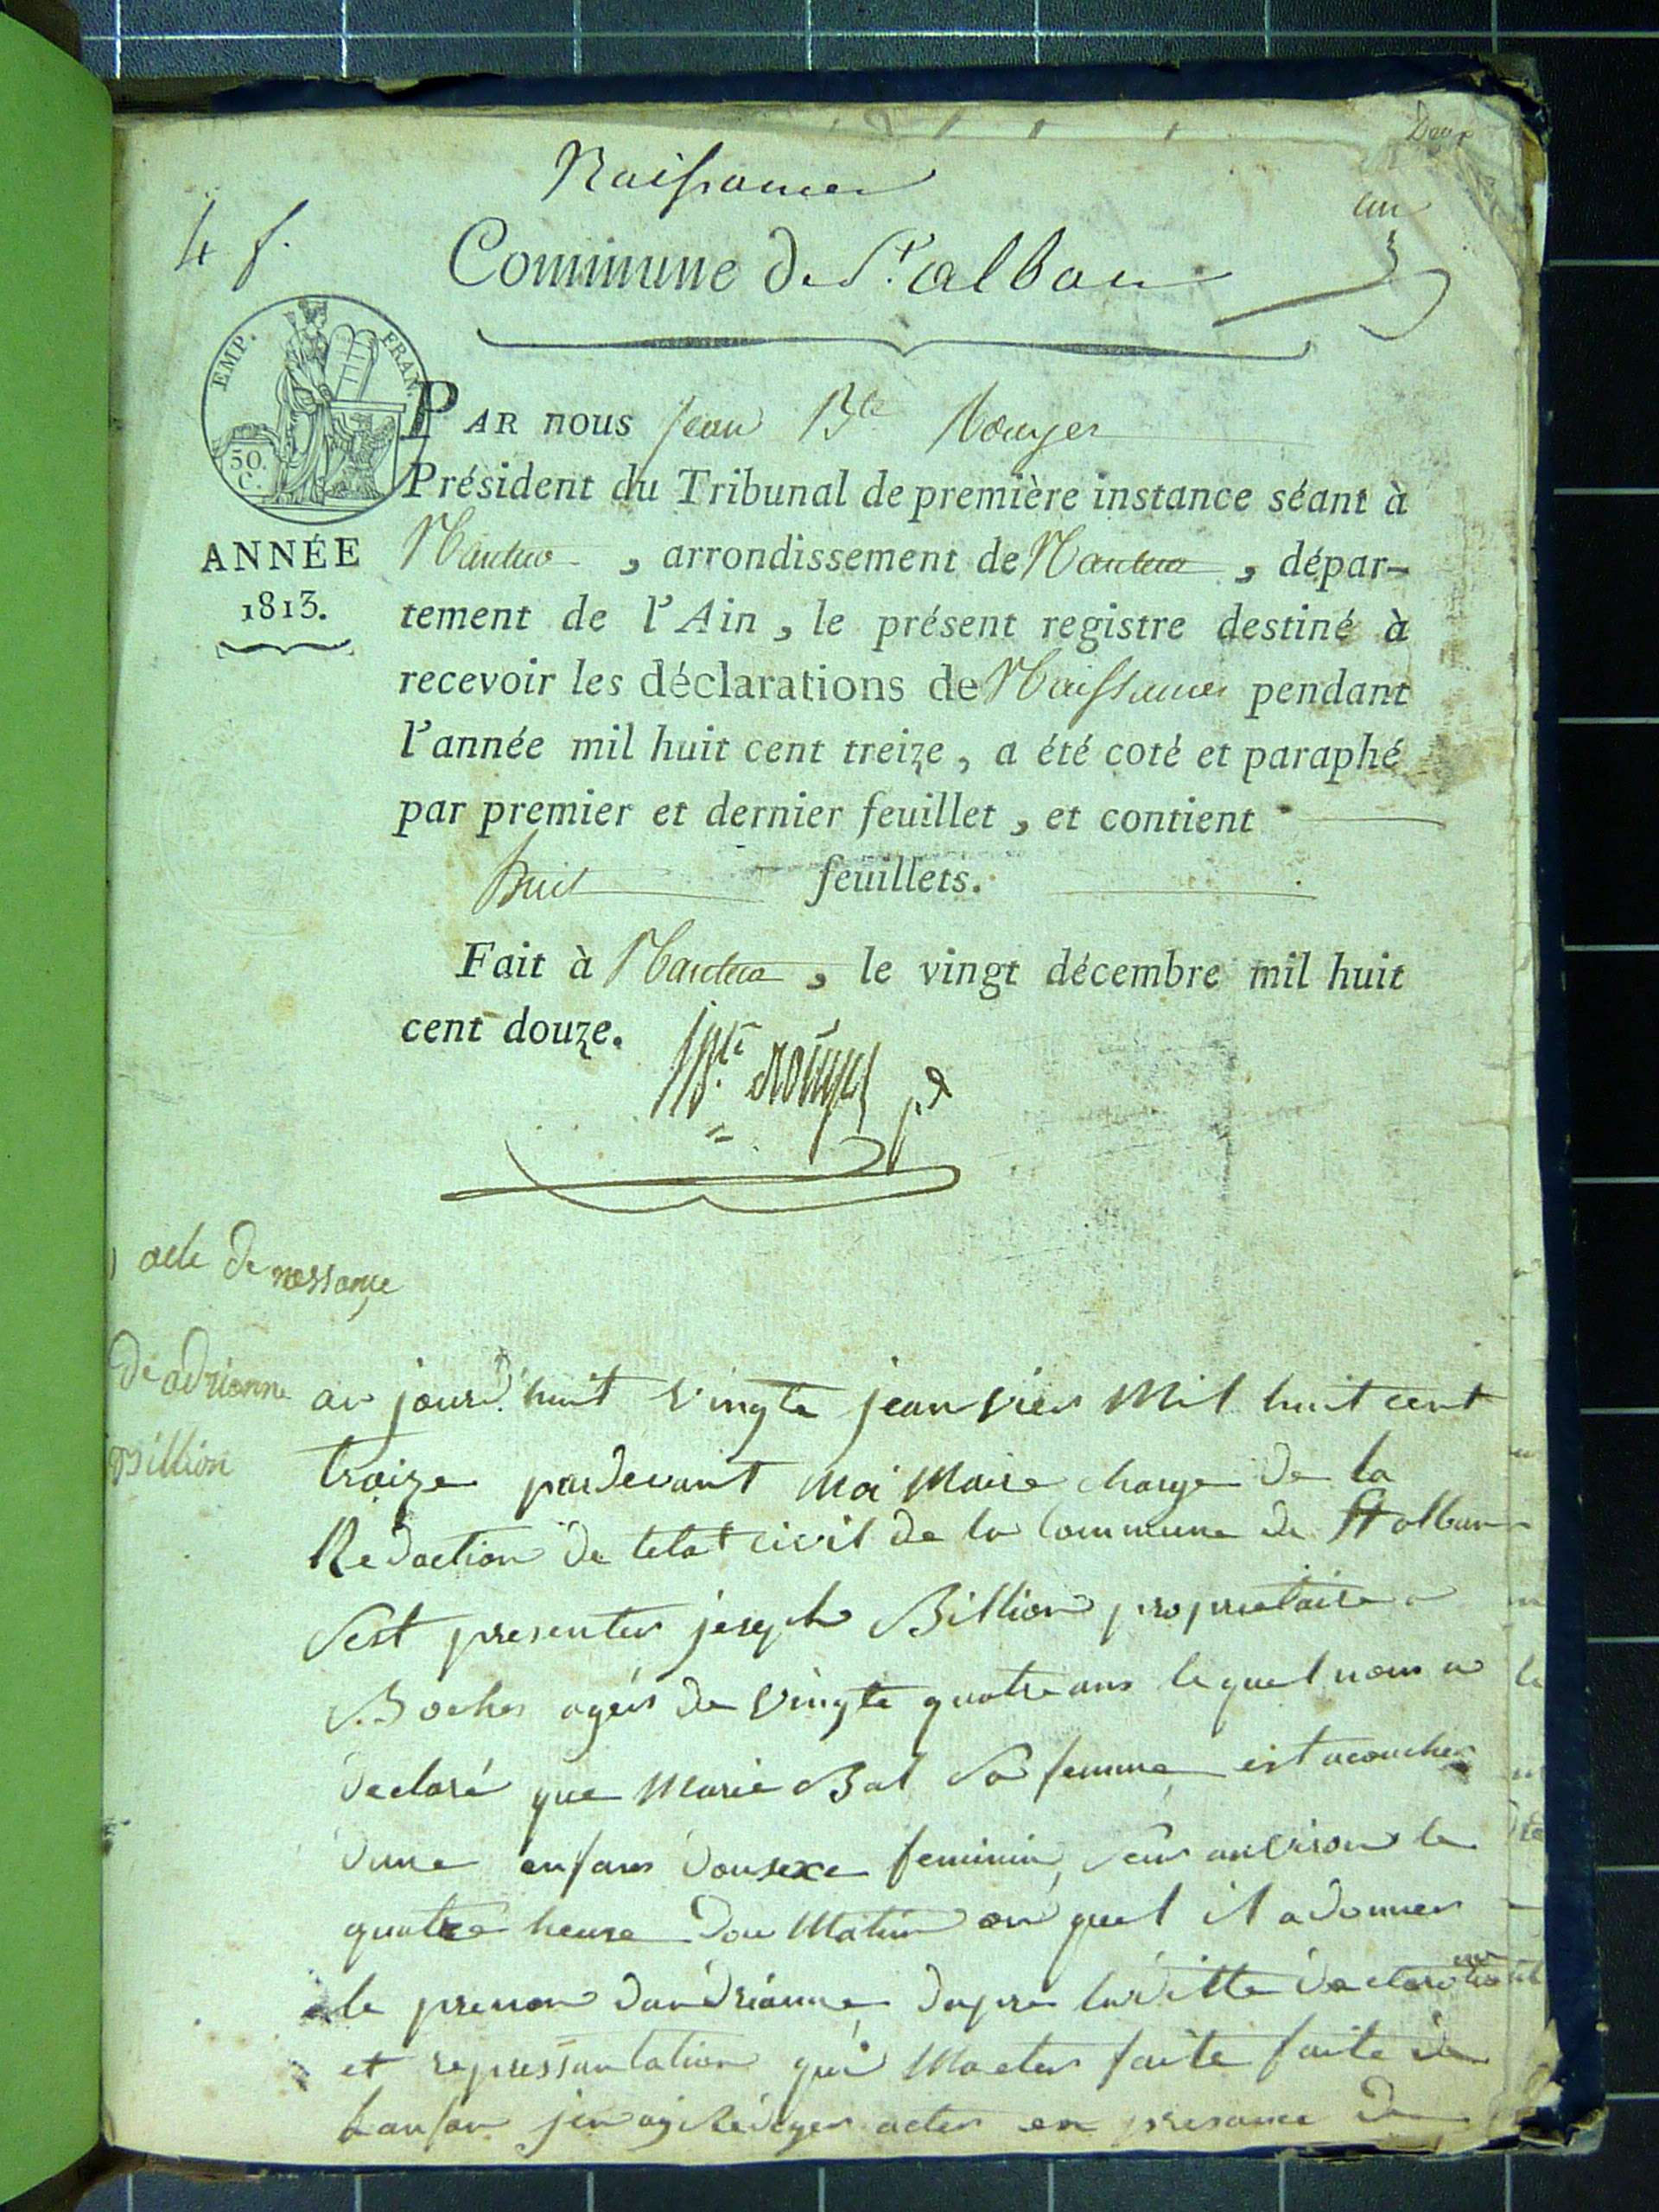 Deux
Naissances
un
4 f.
Commune de St. alban
EMP. FRAN.
50.
C.
ANNÉE
1813.
PAR nous Jean Bte Rouyer
Président du Tribunal de première instance séant à
Nantua, arrondissement de Nantua, dépar-
tement de l'Ain, le présent registre destiné à
recevoir les déclarations de Naissances pendant
l'année mil huit cent treize, a été coté et paraphé
par premier et dernier feuillet, et contient
huit feuillets.
Fait à Nantua, le vingt décembre mil huit
cent douze.
acte de nessançe
de adrianne
Billion
au jourd'huit vingte jeanvier Mil huit cent
traize pardevant Moi Maire charge de la
Redaction de letat civil de la Commune de St alban
Sest presenter joseph Billion proprietaire a
Boches agés de vingte quatre ans le quel nous a
declaré que Marie Bal Sa femme est acoucher
dune enfans dousexe feminin, Sur anviron le
quatre heure dou Matin au quel il a donner
le prenon dandrianne dapre laditte declaration
et represantation qui Maeter faite faite de
lanfan jen ay Rediger acter en presance de